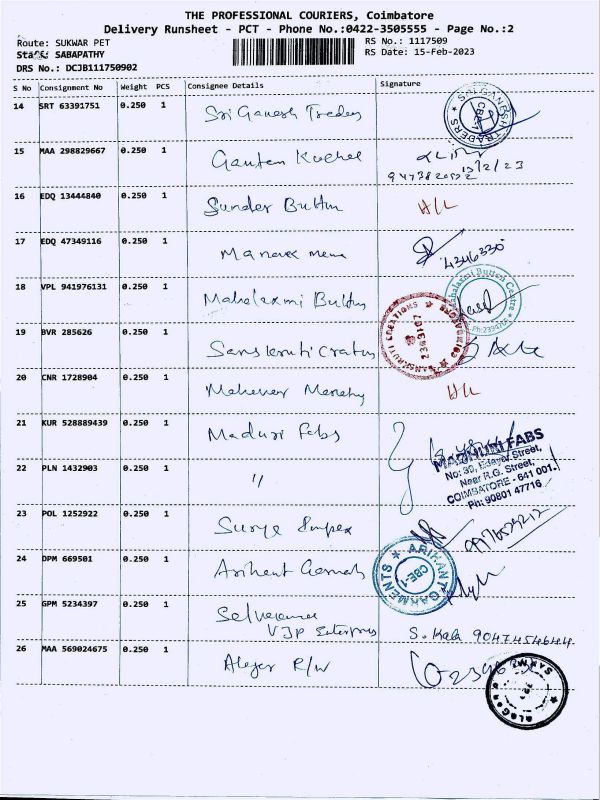 THE PROFESSIONAL COURIERS, Coimbatore
Delivery Runsheet - PCT - Phone No.:0422-3505555 - Page No.:2
Route: SUKWAR PET
RS No.: 1117509
Staff: SABAPATHY
RS Date: 15-Feb-2023
DRS No.: DCJB111750902
S No Consignment No Weight PCS Consignee Details Signature
14 SRT 63391751 0.250 1 Sri Ganesh Traders
SRI GANESH TRADERS CBE
15 MAA 298829667 0.250 1 Gautam
16 EDQ 13444840 0.250 1 Sunder Button H/L
17 EDQ 47349116 0.250 1 Manavk mena 4346330
18 VPL 941976131 0.250 1 Mahalaxmi Button
Mahalaxmi Button Centre
19 BVR 285626 0.250 1 Sanskruti
SANSKRUTI CREATIONS COIMBATORE 2393107
20 CNR 1728904 0.250 1 H/L
21 KUR 528889439 0.250 1 Maduri Fabs
MADHURI FABS
No: 39, Edayar Street,
Near R.G. Street,
COIMBATORE - 641 001.
Ph: 90801 47716
22 PLN 1432903 0.250 1 "
23 POL 1252922 0.250 1 Surya Impex
24 DPM 669501 0.250 1 Arihant Garments
ARIHANT GARMENTS CBE-1
25 GPM 5234397 0.250 1 Selvakumar
VJP Enterprises S. Kala
26 MAA 569024675 0.250 1 R/W